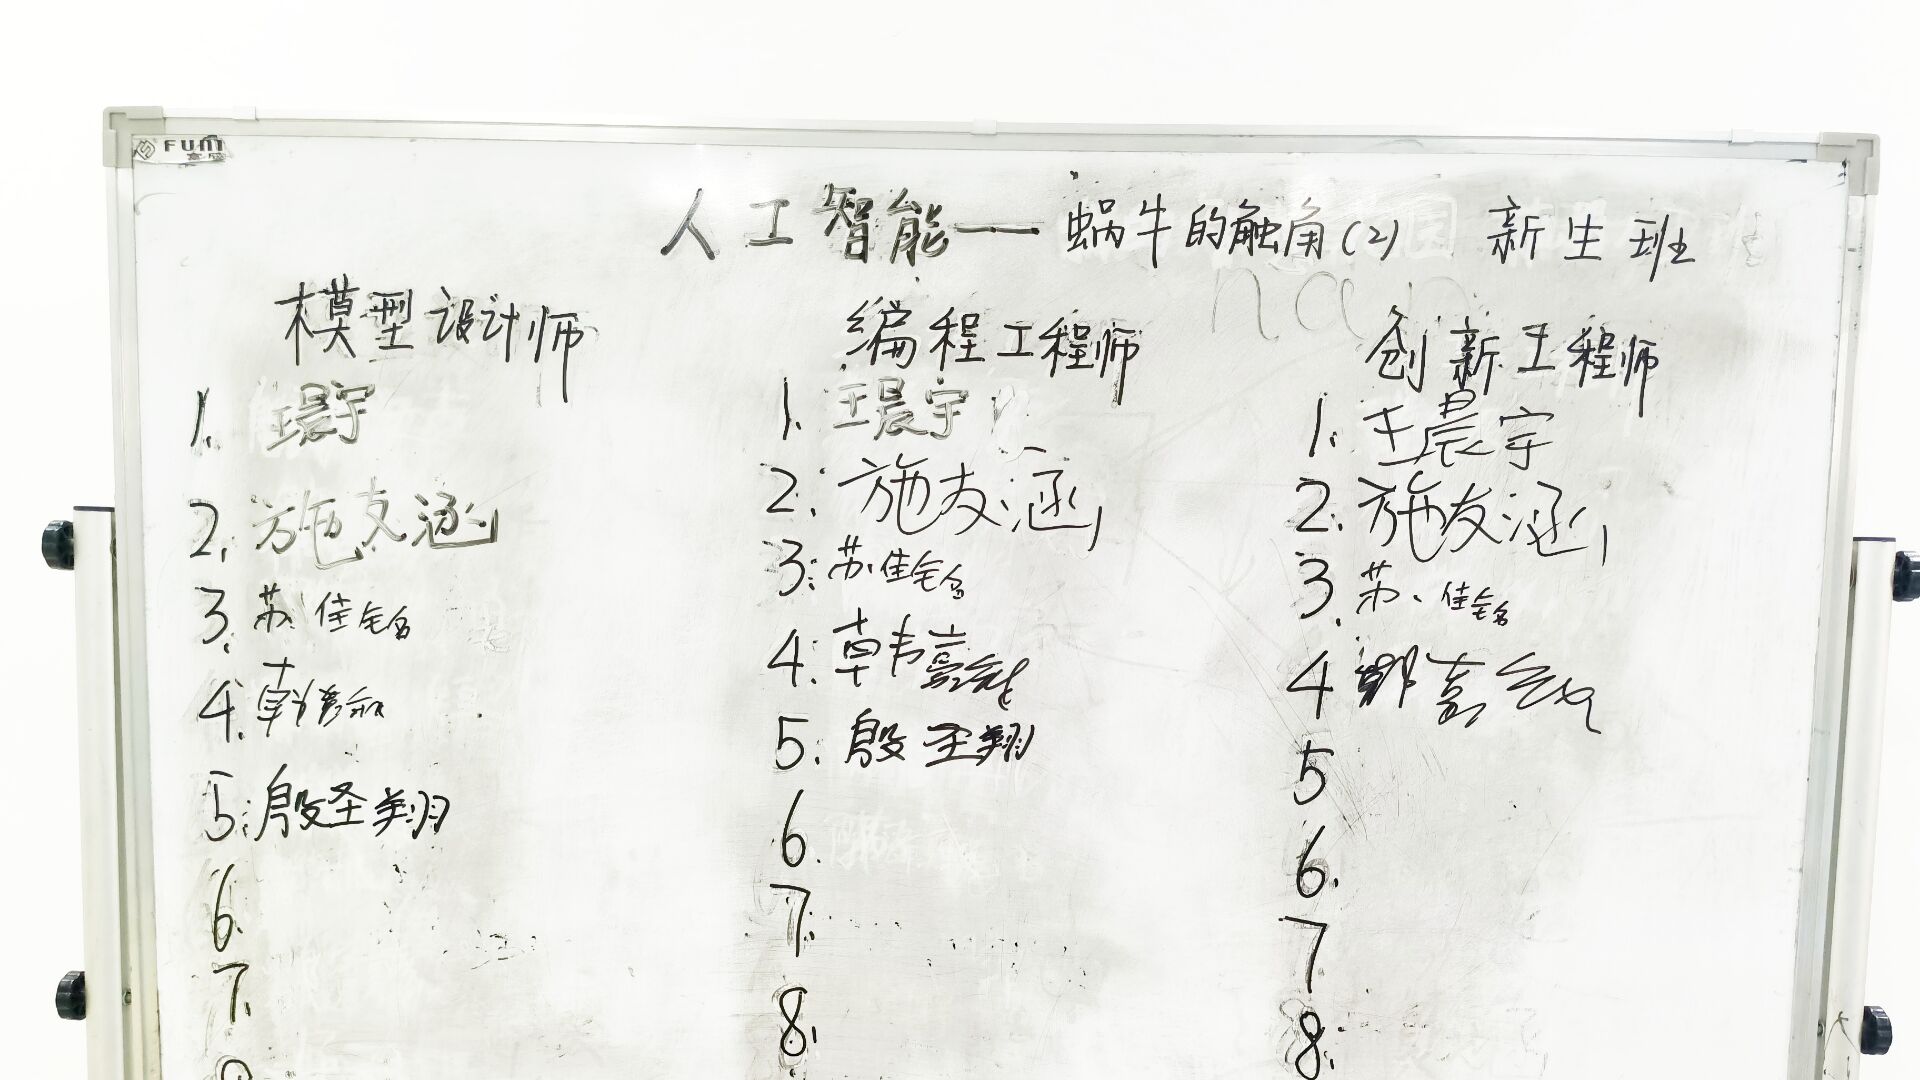 FUNI
人工智能——蜗牛的触角(2) 新生班
模型设计师 编程工程师 创新工程师
1. 王晨宇 1. 王晨宇 1. 王晨宇
2. 施友涵 2. 施友涵 2. 施友涵
3. 苏佳铭 3. 苏佳铭 3. 苏佳铭
4. 4. 4
5. 殷圣翔 5. 殷圣翔 5
6. 6. 6.
7. 7. 7
8. 8.